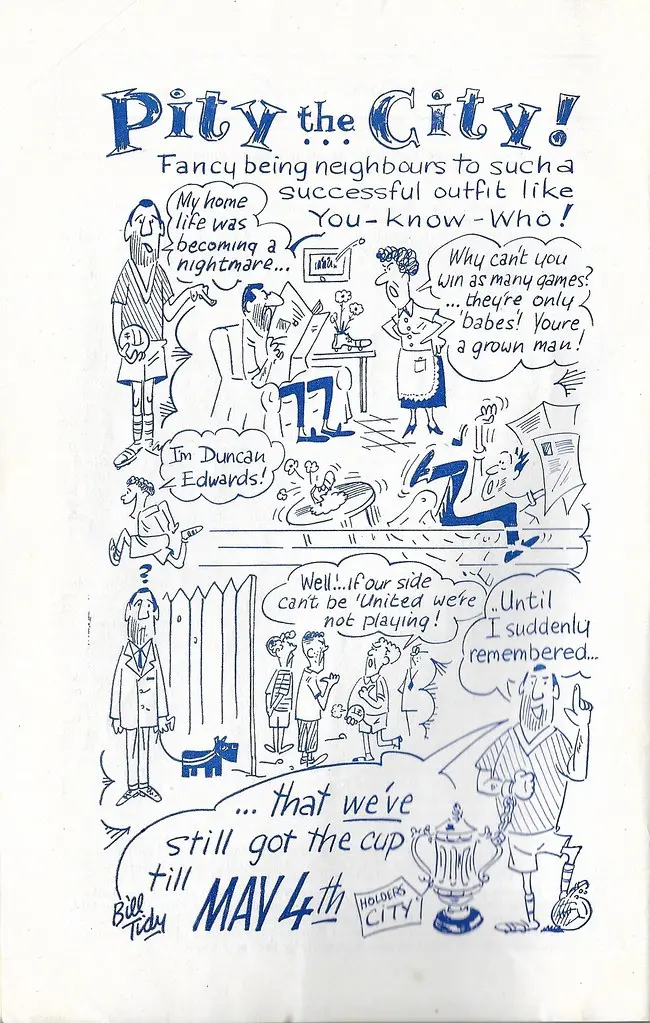 Pity the City!
Fancy being neighbours to such a
successful outfit like
You-know-Who!
My home
life was
becoming a
nightmare...
Why can't you
win as many games?
... they're only
'babes'! Youre
a grown man!
I'm Duncan
Edwards!
?
Well!.. If our side
can't be 'United we're
not playing!
..Until
I suddenly
remembered...
... that we've
still got the cup
till
MAY 4th
HOLDERS
CITY
Bill
Tidy